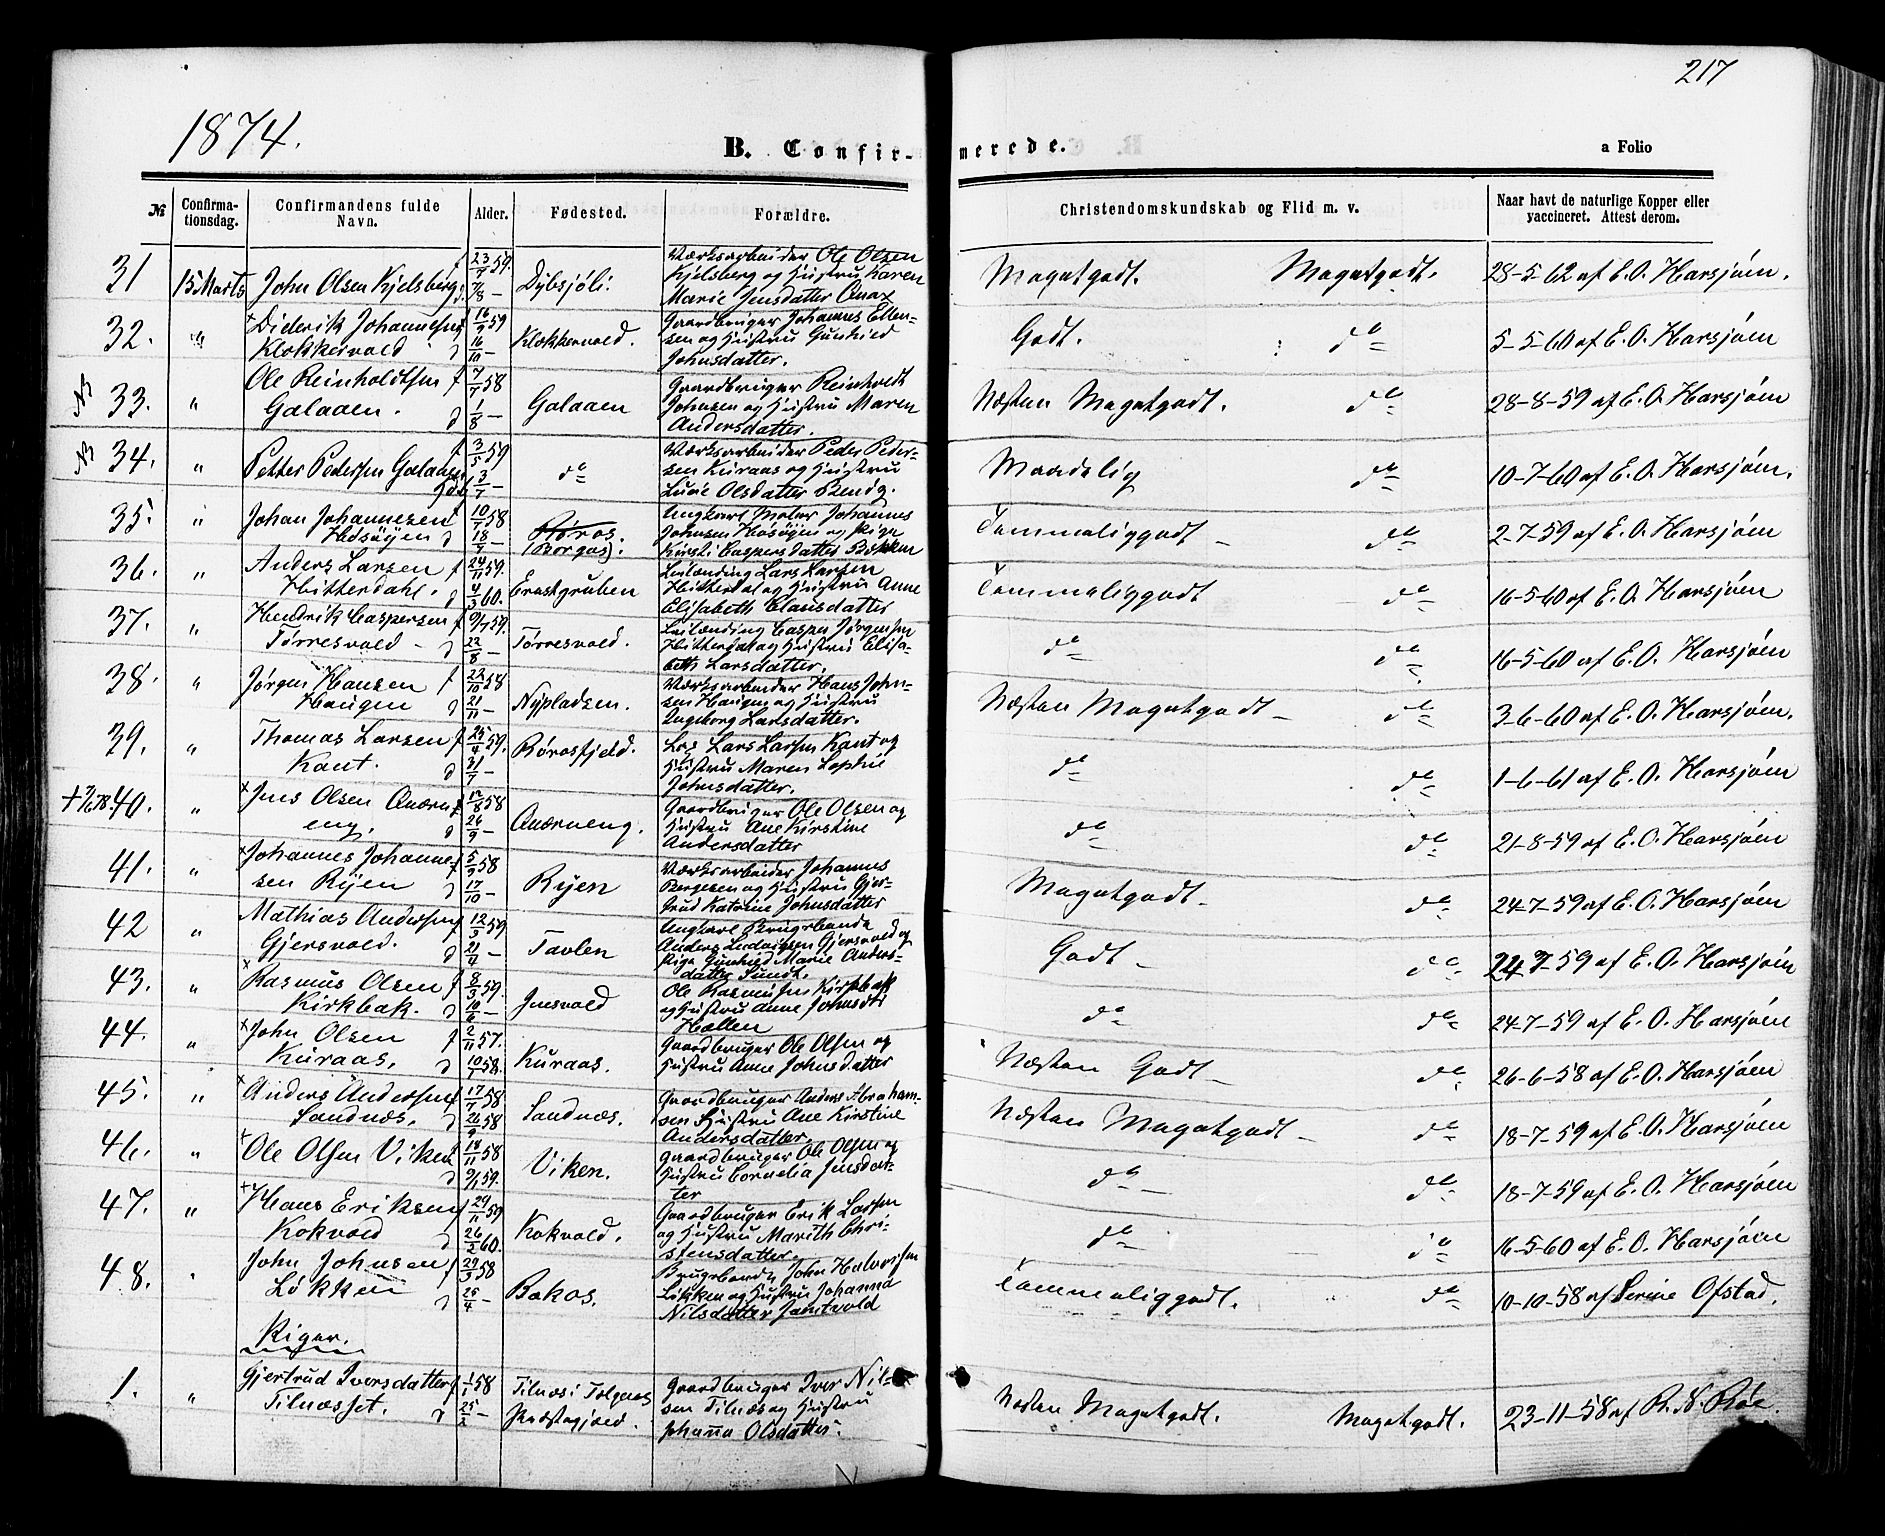 217
1874.
B. Confir-
merede.
a Folio
№
Confirma-
tionsdag.
Confirmandens fulde
Navn.
Alder.
Fødested.
Forældre.
Christendomskundskab og Flid m. v.
Naar havt de naturlige Kopper eller
vaccineret. Attest derom.
31 15 Marts John Olsen Kjelsberg f 23/7 59. d 7/8 — Dybsjöli. Værksarbeider Ole Olsen
Kjelsberg og Hustru Karen
Marie Jensdatter
Megetgodt. Megetgodt. 28-5-62 af E. O. Harsjøen.
32. " + Diderik Johannesen f 16/9 59
Klokkervold d 16/10 — Klokkervold. Gaardbruger Johannes Ellen-
sen og Hustru Gunhild
Johnsdatter.
Godt. do 5-5-60 af E. O. Harsjøen
NB 33. " Ole Reinholdtsen f 7/7 58
Galaaen. d 1/8 — Galaaen Gaardbruger Reinholdt
Johnsen og Hustru Maren
Andersdatter.
Næsten Megetgodt. do 28-8-59 af E. O. Harsjøen
NB 34. " Petter Pedersen Galaaen f 3/5 59 3/7 — do Værksarbeider Peder Peder-
sen Kuraas og Hustru
Lucie Olsdatter
Maadelig do 10-7-60 af E. O. Harsjøen.
35. " Johan Johannesen f 10/7 58
Høsøien d 18/7 — Røros.
(Borgos). Ungkarl Johannes
Johnsen Høsøien og Pige
Kirsti Caspersdatter
Temmeliggodt — do 2-7-59 af E. O. Harsjøen
36. " Anders Larsen f 24/11 59.
Hitterdahl. d 4/3 60. Ernstgruben Leilænding Lars Larsen
Hitterdal og Hustru Anne
Elisabeth Clausdatter
Temmeliggodt do 16-5-60 af E. O. Harsjøen
37. " Hendrik Caspersen f 9/7 59.
Tørresvold — d 22/8 — Tørresvold. Leilænding Casper Jørgensen
Hitterdal og Hustru Elisa-
beth Larsdatter.
do do 16-5-60 af E. O. Harsjøen
38. " Jørgen Hansen f 22/10 58
Haugen d 21/11 — Nypladsen. Værksarbeider Hans John-
sen Haugen og Hustru
Ingeborg Larsdatter.
Næsten Megetgodt — do 3-6-60 af E. O. Harsjøen.
39. " Thomas Larsen f 25/4 59.
Kant. d 31/7 — Rørosfjeld. Lars Larsen Kant og
Hustru Maren Sophie
Johnsdatter.
do do 1-6-61 af E. O. Harsjøen
40. " + Jens Olsen Qværn- f 17/8 58
eng. d 26/9 — Qværneng. Gaardbruger Ole Olsen og
Hustru Ane Kirstine
Andersdatter
do do 21-8-59 af E. O. Harsjøen
41. " + Johannes Johanne- f 5/9 58
sen Ryen d 17/10 — Ryen Værksarbeider Johannes
Bergesen og Hustru Gjer-
trud Katrine Johnsdatter
Megetgodt — do 24-7-59 af E. O. Harsjøen
42 " Mathias Andersen f 12/3 59
Gjersvold. d 21/4 — Tavlen Ungkarl Brugsbonde
Anders Ludvigsen Gjersvold og
Pige Gunhild Marie Anders-
datter Sundt.
Godt — do 24-7-59 af E. O. Harsjøen
43. " + Rasmus Olsen f 8/3 59.
Kirkbak. d 10/6 — Jensvold Ole Rasmusen Kirkbak
og Hustru Anne Johnsdt
Hallen
do do 24-7-59 af E. O. Harsjøen
44. " + John Olsen f 2/11 57.
Kuraas. d 10/1 58. Kuraas. Gaardbruger Ole Olsen og
Hustru Anne Johnsdatter
Næsten Godt — do 26-6-58 af E. O. Harsjøen
45. " + Anders Andersen f 17/7 58
Sandnæs. d 26/9 58 Sandnæs. Gaardbruger Anders Abraham-
sen Hustru Ane Kirstine
Andersdatter.
Næsten Megetgodt — do 18-7-59 af E. O. Harsjøen
46. " + Ole Olsen Viken f 18/11 58
d 9/1 59. Viken. Gaardbruger Ole Olsen og
Hustru Cornelia Jensdat-
ter
do — do 18-7-59 af E. O. Harsjøen
47. " + Hans Eriksen f 29/11 59
Kokvold d 26/2 60. Kokvold. Gaardbruger Erik Larsen
og Hustru Marith Chri-
stensdatter.
do do 16-5-60 af E. O. Harsjøen
48. " John Johnsen f 29/3 58
Løkken d 25/4 — Bakos. Brugsbonde John Halvorsen
Løkken og Hustru Johanna
Nilsdatter Jamtvold
Temmeliggodt. do 10-10-58 af Serine Ofstad.
Piger.
1. " Gjertrud Iversdatter f 1/1 58
Tilnæsset. d 25/2 — Tilnæs i Tolgens
Præstegjæld. Gaardbruger Iver Nil-
sen Tilnæs og Hustru
Johanna Olsdatter.
Næsten Megetgodt. Megetgodt. 23-11-58 af R. N. Røe